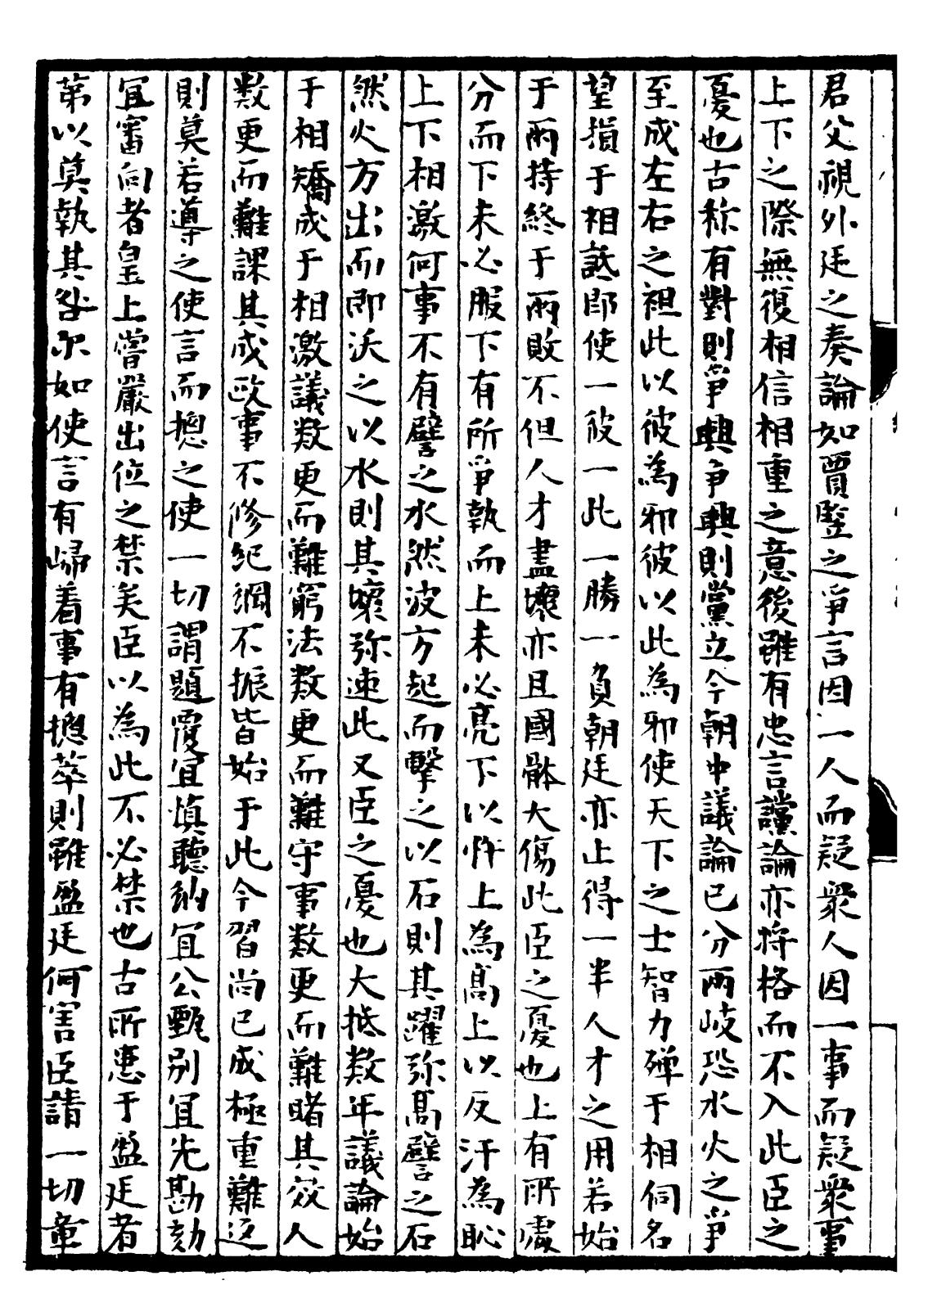 君父視外廷之奏論如賈豎之爭言因一人而疑衆人因一事而疑衆事
上下之際無復相信相重之意後雖有忠言讜論亦将格而不入此臣之
憂也古称有對則爭興爭興則黨立今朝中議論已分兩岐恐水火之爭
至成左右之袒此以彼為邪彼以此為邪使天下之士智力殫于相伺名
望損于相詆即使一彼一此一勝一負朝廷亦止得一半人才之用若始
于兩持終于兩敗不但人才盡壞亦且國骵大傷此臣之憂也上有所處
分而下未必服下有所爭執而上未必亮下以忤上為高上以反汗為恥
上下相激何事不有譬之水然波方起而擊之以石則其躍弥髙譬之石
然火方出而即沃之以水則其壞弥速此又臣之憂也大抵数年議論始
于相矯成于相激議数更而難窮法数更而難守事数更而難睹其效人
数更而難課其成政事不修紀綱不振皆始于此今習尚已成極重難返
則莫若導之使言而摠之使一切謂題覆宜慎聽納宜公甄别宜先勘劾
宜審向者皇上嘗嚴出位之禁矣臣以為此不必禁也古所患于盈廷者
第以莫執其咎尔如使言有歸着事有摠萃則雖盈廷何害臣請一切章